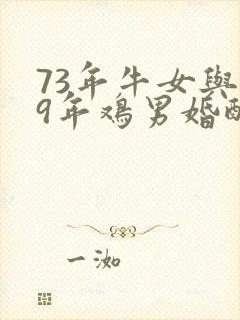 73年牛女與
9年鸡男婚配
一泇